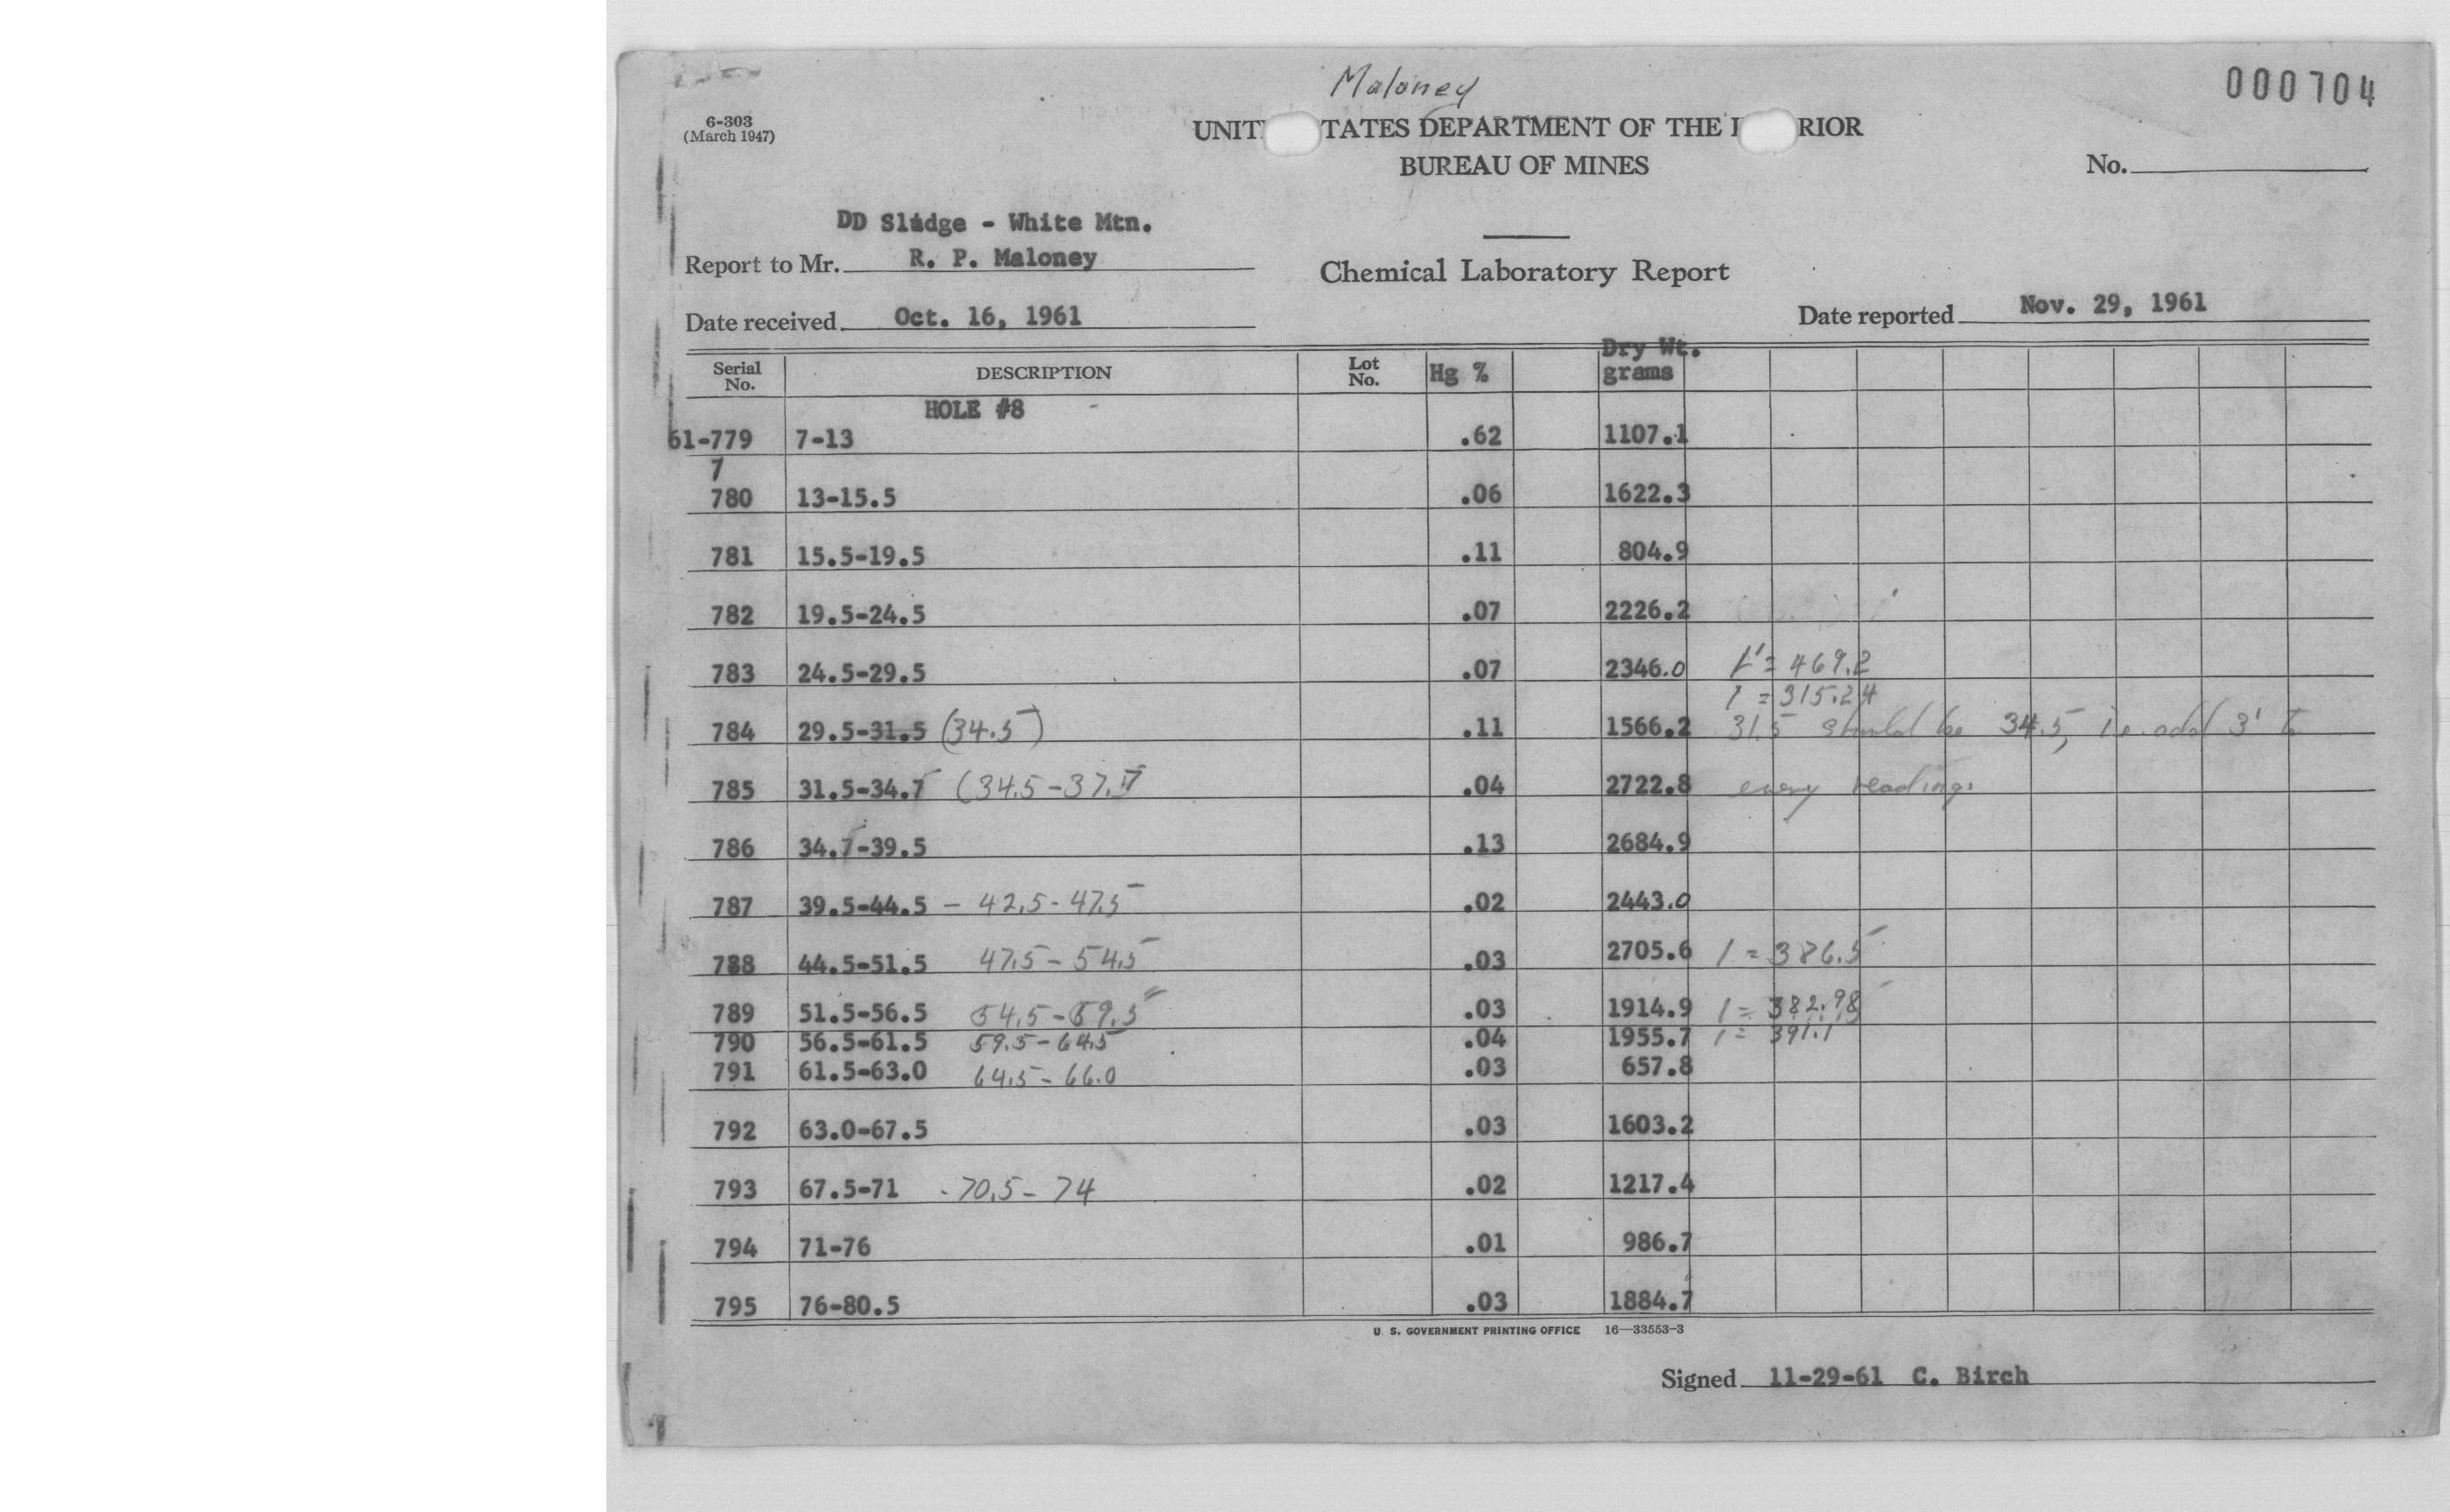 Maloney
000704
6-303
(March 1947)
UNIT TATES DEPARTMENT OF THE I RIOR
BUREAU OF MINES
No.
DD Sludge - White Mtn.
Report to Mr. R. P. Maloney
Chemical Laboratory Report
Date received Oct. 16, 1961
Date reported Nov. 29, 1961
Serial No. DESCRIPTION Lot No. Hg % Dry Wt. grams
HOLE #8
61-779 7-13 .62 1107.1
7
780 13-15.5 .06 1622.3
781 15.5-19.5 .11 804.9
782 19.5-24.5 .07 2226.2
783 24.5-29.5 .07 2346.0 1' = 469.2
1 = 315.24
784 29.5-31.5 (34.5) .11 1566.2 31.5 should be 34.5, i.e. add 3' to
785 31.5-34.7 (34.5-37.7 .04 2722.8 every reading.
786 34.7-39.5 .13 2684.9
787 39.5-44.5 - 42.5-47.5 .02 2443.0
788 44.5-51.5 47.5-54.5 .03 2705.6 1 = 386.5
789 51.5-56.5 54.5-59.5 .03 1914.9 1 = 382.98
790 56.5-61.5 59.5-64.5 .04 1955.7 1 = 391.1
791 61.5-63.0 64.5-66.0 .03 657.8
792 63.0-67.5 .03 1603.2
793 67.5-71 - 70.5-74 .02 1217.4
794 71-76 .01 986.7
795 76-80.5 .03 1884.7
U. S. GOVERNMENT PRINTING OFFICE 16—33553-3
Signed 11-29-61 C. Birch